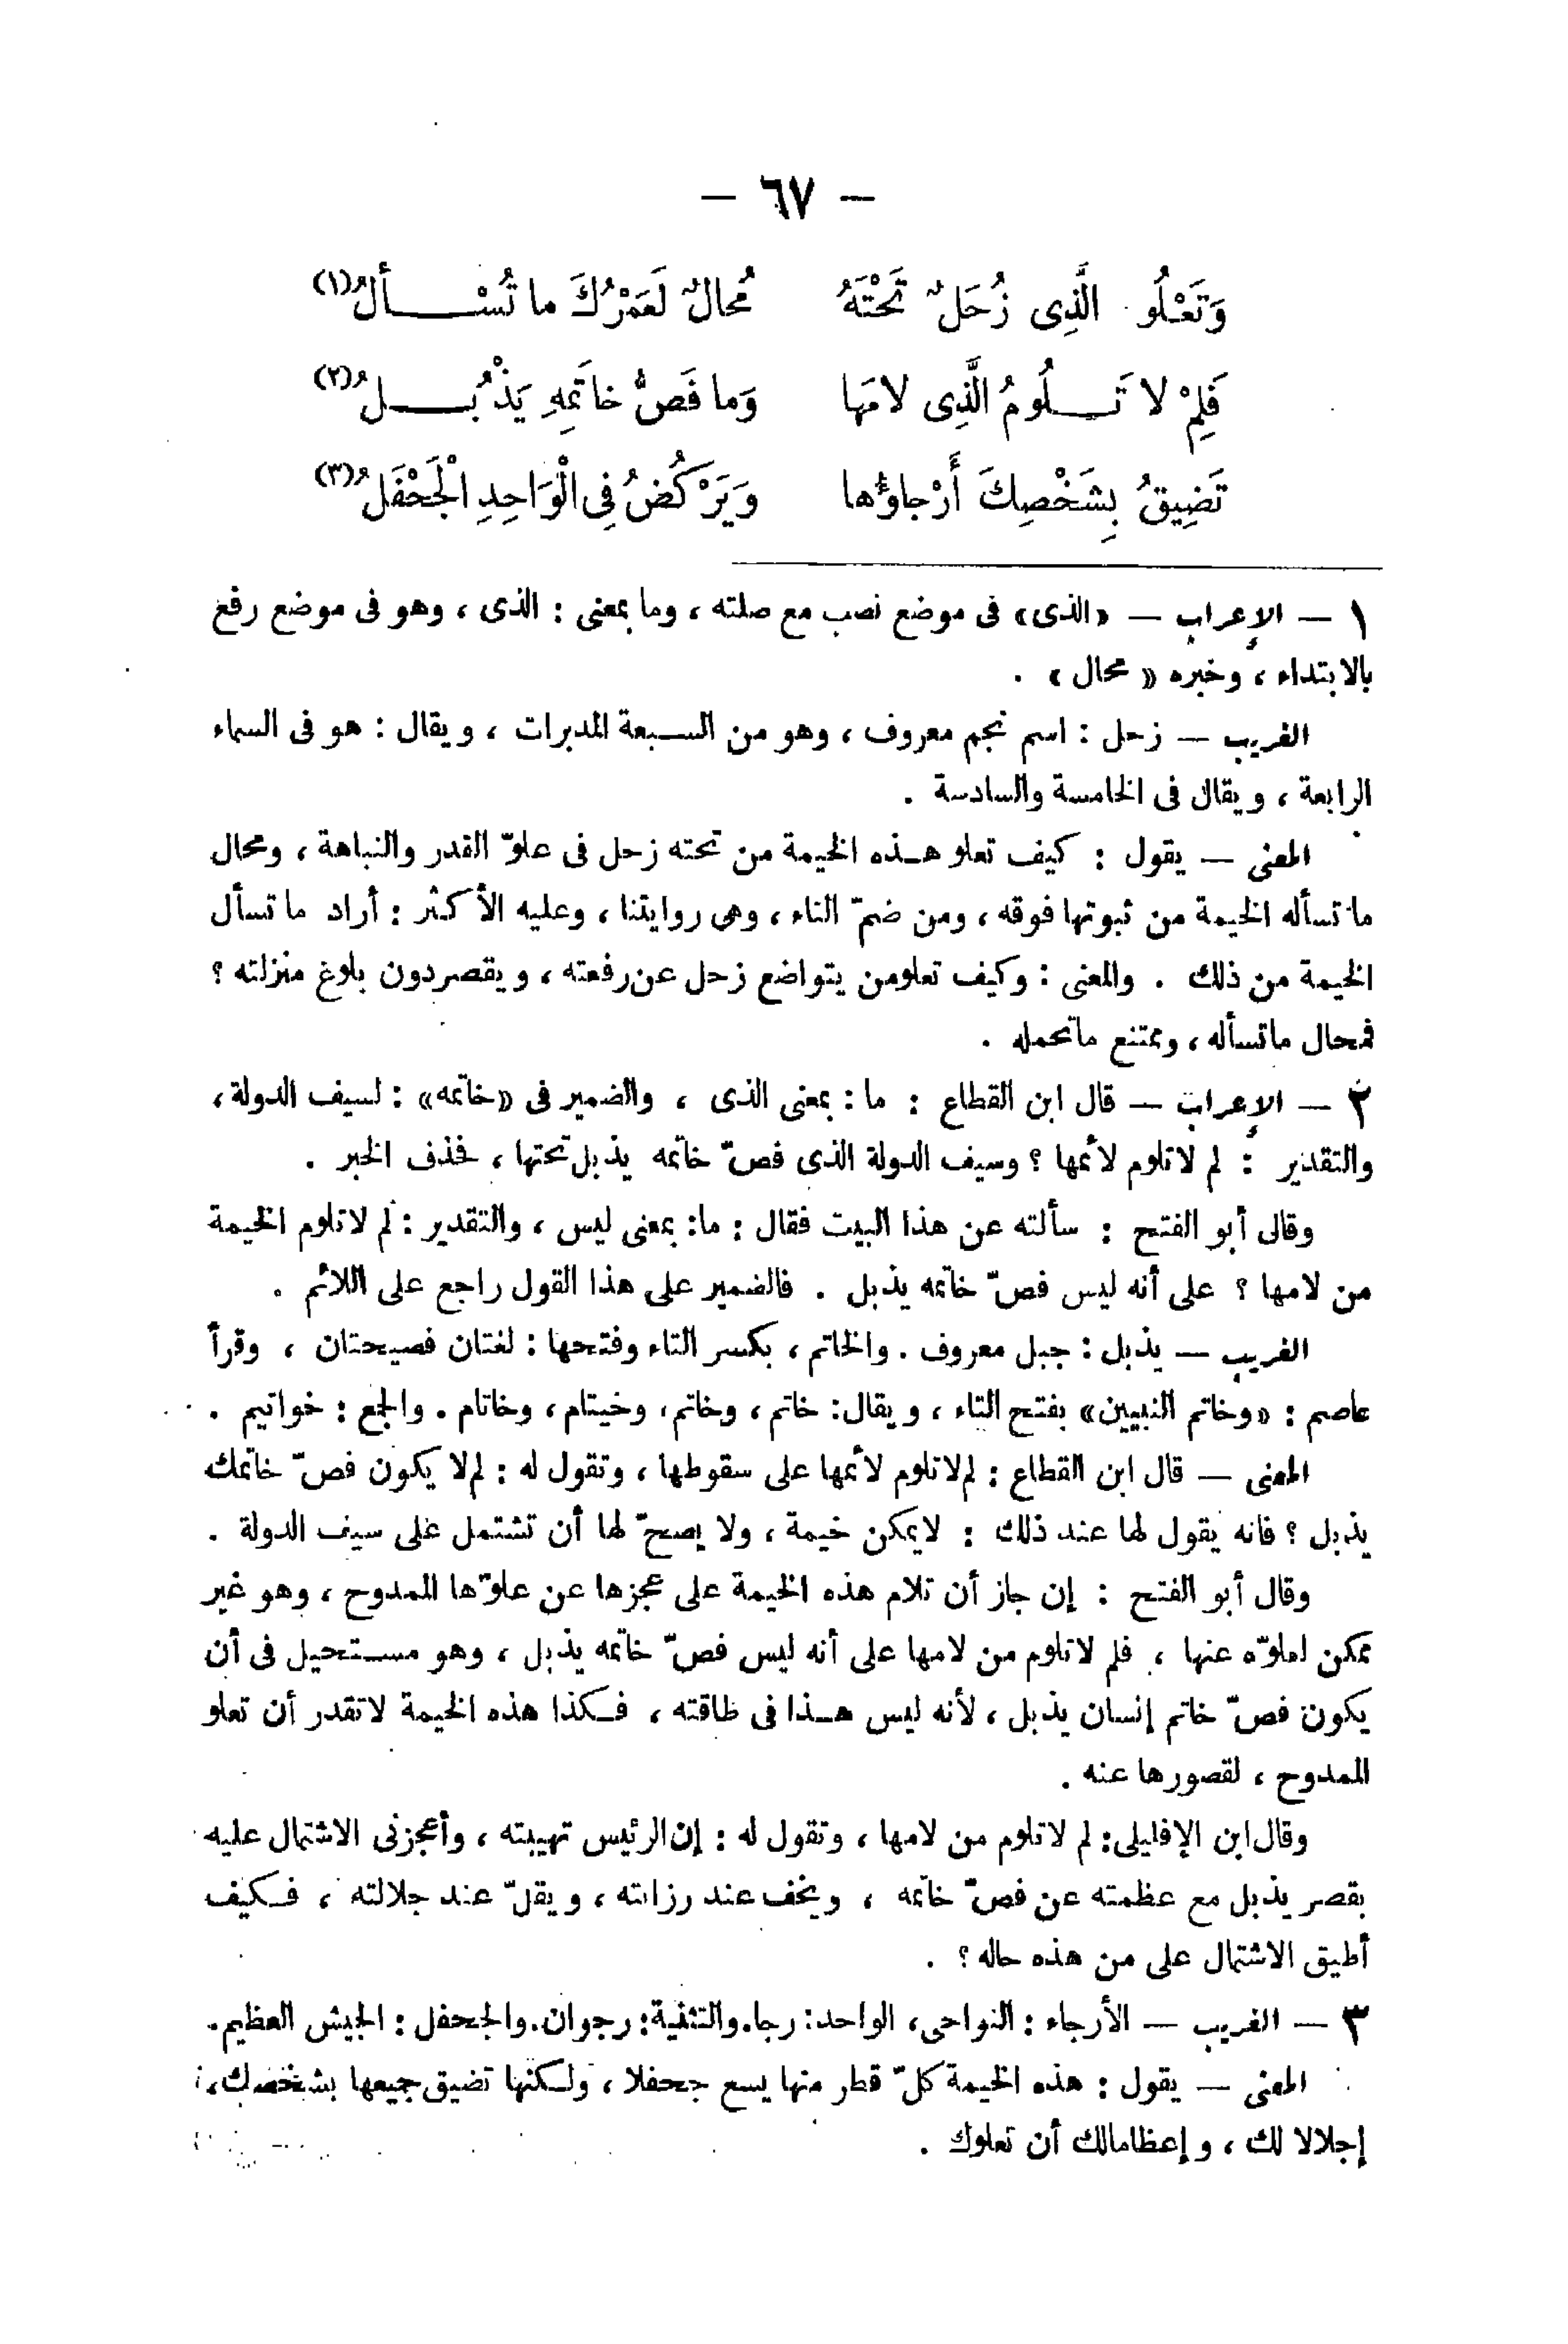 — ٦٧ —
وَتَعْلُو الَّذِى زُحَلٌ تَحْتَهُ مُحالٌ لَعَمْرُكَ ما تُسْـــأَلُ(١)
فَلِمْ لا تَـــلُومُ الَّذِى لامَها وَما فَصُّ خاتَمِهِ يَذْبُـــلُ(٢)
تَضِيقُ بِشَخْصِكَ أَرْجاؤُها وَيَرْكُضُ فِى الْوَاحِدِ الْجَحْفَلُ(٣)
١ — الإعراب — «الذى» فى موضع نصب مع صلته ، وما بمعنى : الذى ، وهو فى موضع رفع
بالابتداء ، وخبره « محال » .
الغريب — زحل : اسم نجم معروف ، وهو من السبعة المدبرات ، ويقال : هو فى السماء
الرابعة ، ويقال فى الخامسة والسادسة .
المعنى — يقول : كيف تعلو هـذه الخيمة من تحته زحل فى علوّ القدر والنباهة ، ومحال
ما تسأله الخيمة من ثبوتها فوقه ، ومن ضمّ التاء ، وهى روايتنا ، وعليه الأكثر : أراد ما تسأل
الخيمة من ذلك . والمعنى : وكيف تعلو من يتواضع زحل عن رفعته ، ويقصر دون بلوغ منزلته ؟
فمحال ما تسأله ، وممتنع ما تحمله .
٢ — الإعراب — قال ابن القطاع : ما : بمعنى الذى ، والضمير فى «خاتمه» : لسيف الدولة ،
والتقدير : لم لا تلوم لأئمها ؟ وسيف الدولة الذى فصّ خاتمه يذبل تحتها ، فحذف الخبر .
وقال أبو الفتح : سألته عن هذا البيت فقال : ما : بمعنى ليس ، والتقدير : لم لا تلوم الخيمة
من لامها ؟ على أنه ليس فصّ خاتمه يذبل . فالضمير على هذا القول راجع على اللائم .
الغريب — يذبل : جبل معروف . والخاتم ، بكسر التاء وفتحها : لغتان فصيحتان ، وقرأ
عاصم : «وخاتم النبيين» بفتح التاء ، ويقال : خاتم ، وخاتم ، وخيتام ، وخاتام . والجمع : خواتيم .
المعنى — قال ابن القطاع : لم لا تلوم لأئمها على سقوطها ، وتقول له : لم لا يكون فصّ خاتمك
يذبل ؟ فانه يقول لها عند ذلك : لا يمكن خيمة ، ولا يصحّ لها أن تشتمل على سيف الدولة .
وقال أبو الفتح : إن جاز أن تلام هذه الخيمة على عجزها عن علوّها الممدوح ، وهو غير
ممكن لعلوّه عنها ، فلم لا تلوم من لامها على أنه ليس فصّ خاتمه يذبل ، وهو مستحيل فى أن
يكون فصّ خاتم إنسان يذبل ، لأنه ليس هـذا فى طاقته ، فكذا هذه الخيمة لا تقدر أن تعلو
الممدوح ، لقصورها عنه .
وقال ابن الإفليلى : لم لا تلوم من لامها ، وتقول له : إن الرئيس تهيبته ، وأعجزنى الاشتمال عليه
بقصر يذبل مع عظمته عن فصّ خاتمه ، ويخف عند رزانته ، ويقلّ عند جلالته ، فكيف
أطيق الاشتمال على من هذه حاله ؟ .
٣ — الغريب — الأرجاء : النواحى ، الواحد : رجا . والتثنية : رجوان . والجحفل : الجيش العظيم .
المعنى — يقول : هذه الخيمة كلّ قطر منها يسع جحفلا ، ولكنها تضيق جميعها بشخصك ،
إجلالا لك ، وإعظاما لك أن تعلوك .